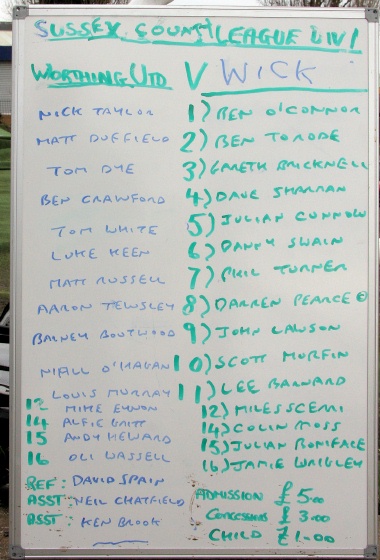 SUSSEX COUNTY LEAGUE DIV 1
WORTHING UTD V WICK
NICK TAYLOR 1) BEN O'CONNOR
MATT DUFFIELD 2) BEN TORODE
TOM DYE 3) GARETH BRICKNELL
BEN CRAWFORD 4) DAVE SHARMAN
TOM WHITE 5) JULIAN CURNOW
LUKE KEEN 6) DANNY SWAIN
MATT RUSSELL 7) PHIL TURNER
AARON TEWSLEY 8) DARREN PEARCE ©
BARNEY BOUTWOOD 9) JOHN LAWSON
NIALL O'HAGAN 10) SCOTT MURFIN
LOUIS MURRAY 11) LEE BARNARD
12 MIKE EYNON 12) MILES SCERRI
14 ALFIE 14) COLIN MOSS
15 ANDY HEWARD 15) JULIAN BONIFACE
16 OLI WASSELL 16) JAMIE WRIGLEY
REF: DAVID SPAIN
ASST: NEIL CHATFIELD
ASST: KEN BROOK
ADMISSION £5.00
CONCESSIONS £3.00
CHILD £1.00